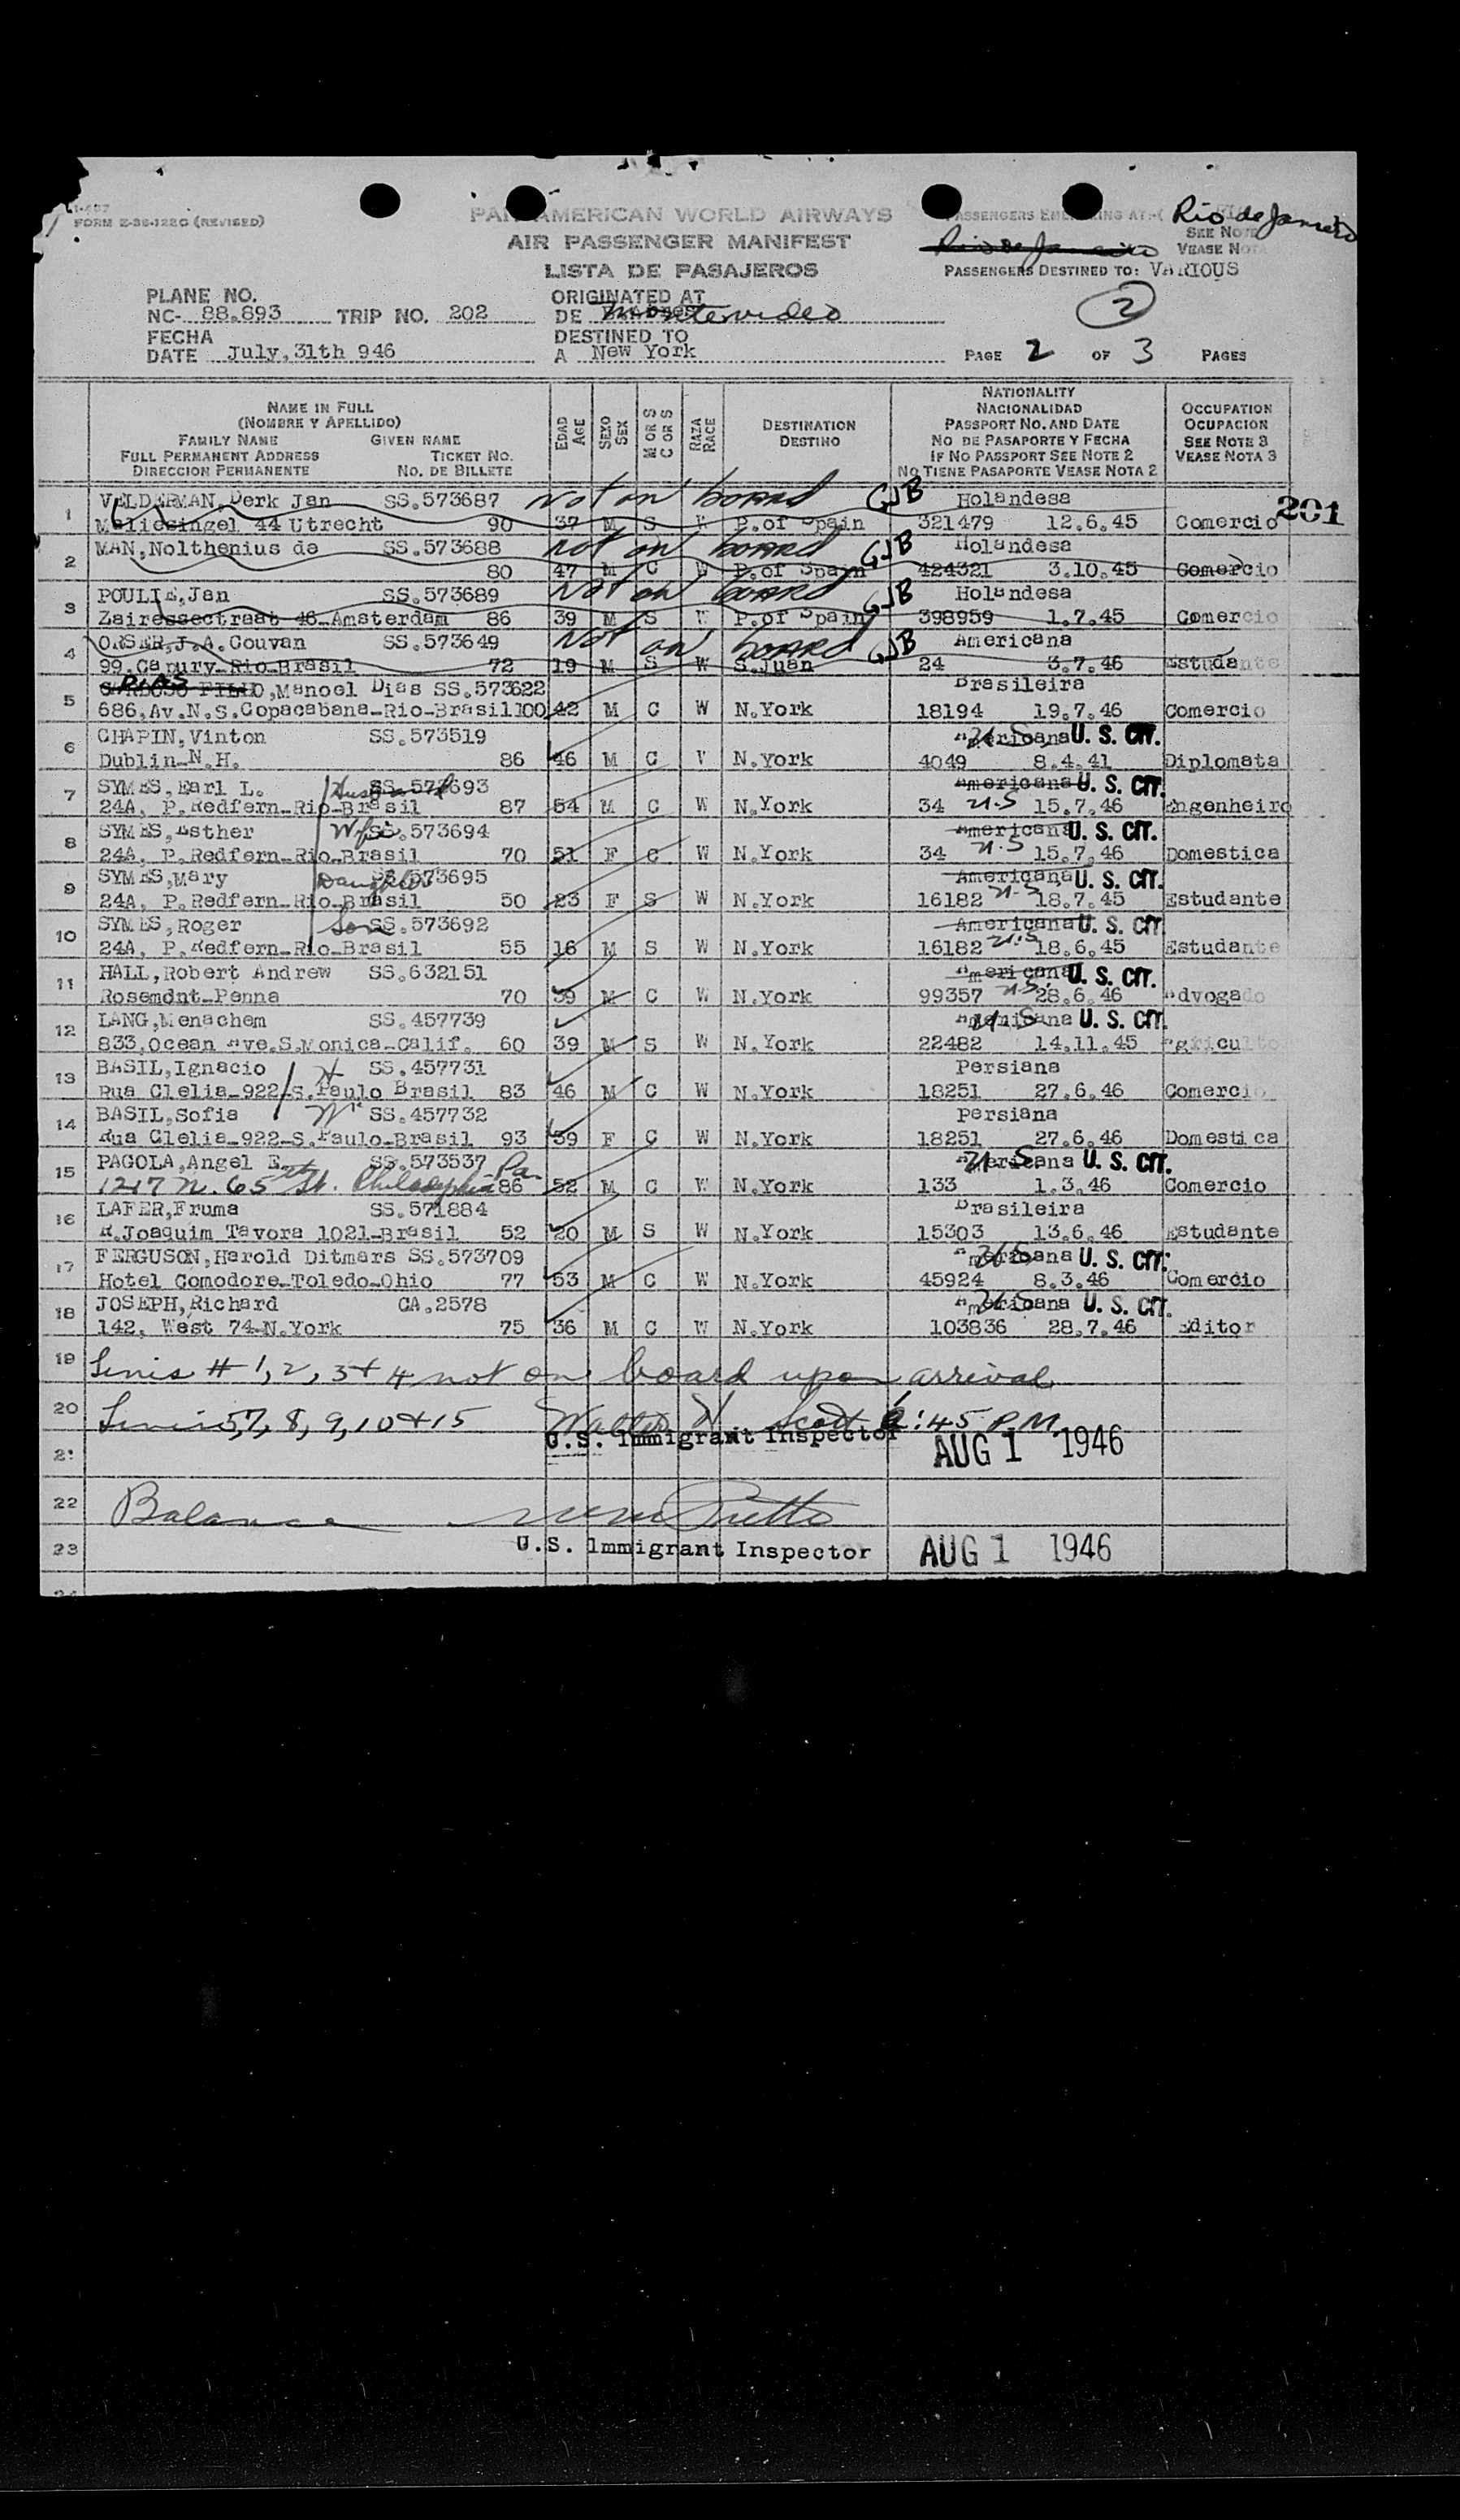 I-437
FORM E-36-122G (REVISED)
PAN AMERICAN WORLD AIRWAYS
AIR PASSENGER MANIFEST
LISTA DE PASAJEROS
Rio de Janeiro
SEE NOTE
Rio de Janeiro VEASE NOTA
PASSENGERS DESTINED TO: VARIOUS
PLANE NO.
NC- 88.893 TRIP NO. 202
FECHA
DATE July,31th 946
ORIGINATED AT
DE Montevideo
DESTINED TO
A New York
2
PAGE 2 OF 3 PAGES
NAME IN FULL
(NOMBRE Y APELLIDO)
FAMILY NAME GIVEN NAME
FULL PERMANENT ADDRESS TICKET NO.
DIRECCION PERMANENTE NO. DE BILLETE
EDAD AGE
SEXO SEX
M OR S C OR S
RAZA RACE
DESTINATION
DESTINO
NATIONALITY
NACIONALIDAD
PASSPORT NO. AND DATE
NO DE PASAPORTE Y FECHA
IF NO PASSPORT SEE NOTE 2
NO TIENE PASAPORTE VEASE NOTA 2
OCCUPATION
OCUPACION
SEE NOTE 3
VEASE NOTA 3
201
1 VELDERMAN,Derk Jan SS.573687 Not on board GJB Holandesa
Maliesingel 44 Utrecht 90 37 M S W P.of Spain 321479 12.6.45 Comercio
2 MAN,Nolthenius de SS.573688 Not on board GJB Holandesa
80 47 M C W P.of Spain 424321 3.10.45 Comercio
3 POULIE,Jan SS.573689 Not on board GJB Holandesa
Zairessectraat 46-Amsterdam 86 39 M S W P.of Spain 398959 1.7.45 Comercio
4 ORSER,J.A.Couvan SS.573649 Not on board GJB Americana
99.Capury-Rio-Brasil 72 19 M S W S.Juan 24 3.7.46 Estudante
5 DIAS CARDOSO FILHO,Manoel Dias SS.573622 Brasileira
686,Av.N.S.Copacabana-Rio-Brasil 100 42 M C W N.York 18194 19.7.46 Comercio
6 CHAPIN,Vinton SS.573519 Americana U.S. U. S. CIT.
Dublin-N.H. 86 46 M C W N.York 4049 8.4.41 Diplomata
7 SYMES,Earl L. Husband SS.573693 Americana U. S. CIT.
24A, P.Redfern-Rio-Brasil 87 54 M C W N.York 34 U.S 15.7.46 Engenheiro
8 SYMES,Esther Wife SS.573694 Americana U. S. CIT.
24A, P.Redfern-Rio-Brasil 70 51 F C W N.York 34 U.S 15.7.46 Domestica
9 SYMES,Mary Daughter SS.573695 Americana U. S. CIT.
24A, P.Redfern-Rio-Brasil 50 23 F S W N.York 16182 U.S. 18.7.45 Estudante
10 SYMES,Roger Son SS.573692 Americana U. S. CIT.
24A, P.Redfern-Rio-Brasil 55 16 M S W N.York 16182 U.S 18.6.45 Estudante
11 HALL,Robert Andrew SS.632151 Americana U. S. CIT.
Rosemont-Penna 70 39 M C W N.York 99357 U.S. 28.6.46 Advogado
12 LANG,Menachem SS.457739 Americana U.S U. S. CIT.
833,Ocean Ave.S.Monica-Calif. 60 39 M S W N.York 22482 14.11.45 Agricultor
13 BASIL,Ignacio H SS.457731 Persiana
Rua Clelia-922-S.Paulo Brasil 83 46 M C W N.York 18251 27.6.46 Comercio
14 BASIL,Sofia W SS.457732 Persiana
Rua Clelia-922-S.Paulo-Brasil 93 39 F C W N.York 18251 27.6.46 Domestica
15 PAGOLA,Angel E. SS.573537 Pa. Americana U.S. U. S. CIT.
1217 N. 65th St. Philadelphia 86 52 M C W N.York 133 1.3.46 Comercio
16 LAFER,Fruma SS.571884 Brasileira
R.Joaquim Tavora 1021-Brasil 52 20 M S W N.York 15303 13.6.46 Estudante
17 FERGUSON,Harold Ditmars SS.573709 Americana U.S. U. S. CIT.
Hotel Comodore-Toledo-Ohio 77 53 M C W N.York 45924 8.3.46 Comercio
18 JOSEPH,Richard CA.2578 Americana U.S. U. S. CIT.
142, West 74-N.York 75 36 M C W N.York 103836 28.7.46 Editor
19 Lines # 1, 2, 3 + 4 not on board upon arrival
20 Lines 5, 7, 8, 9, 10 + 15 Walter H. Scott 6:45 P.M.
21 U.S. Immigrant Inspector AUG 1 1946
22 Balance
23 U.S. Immigrant Inspector AUG 1 1946
24